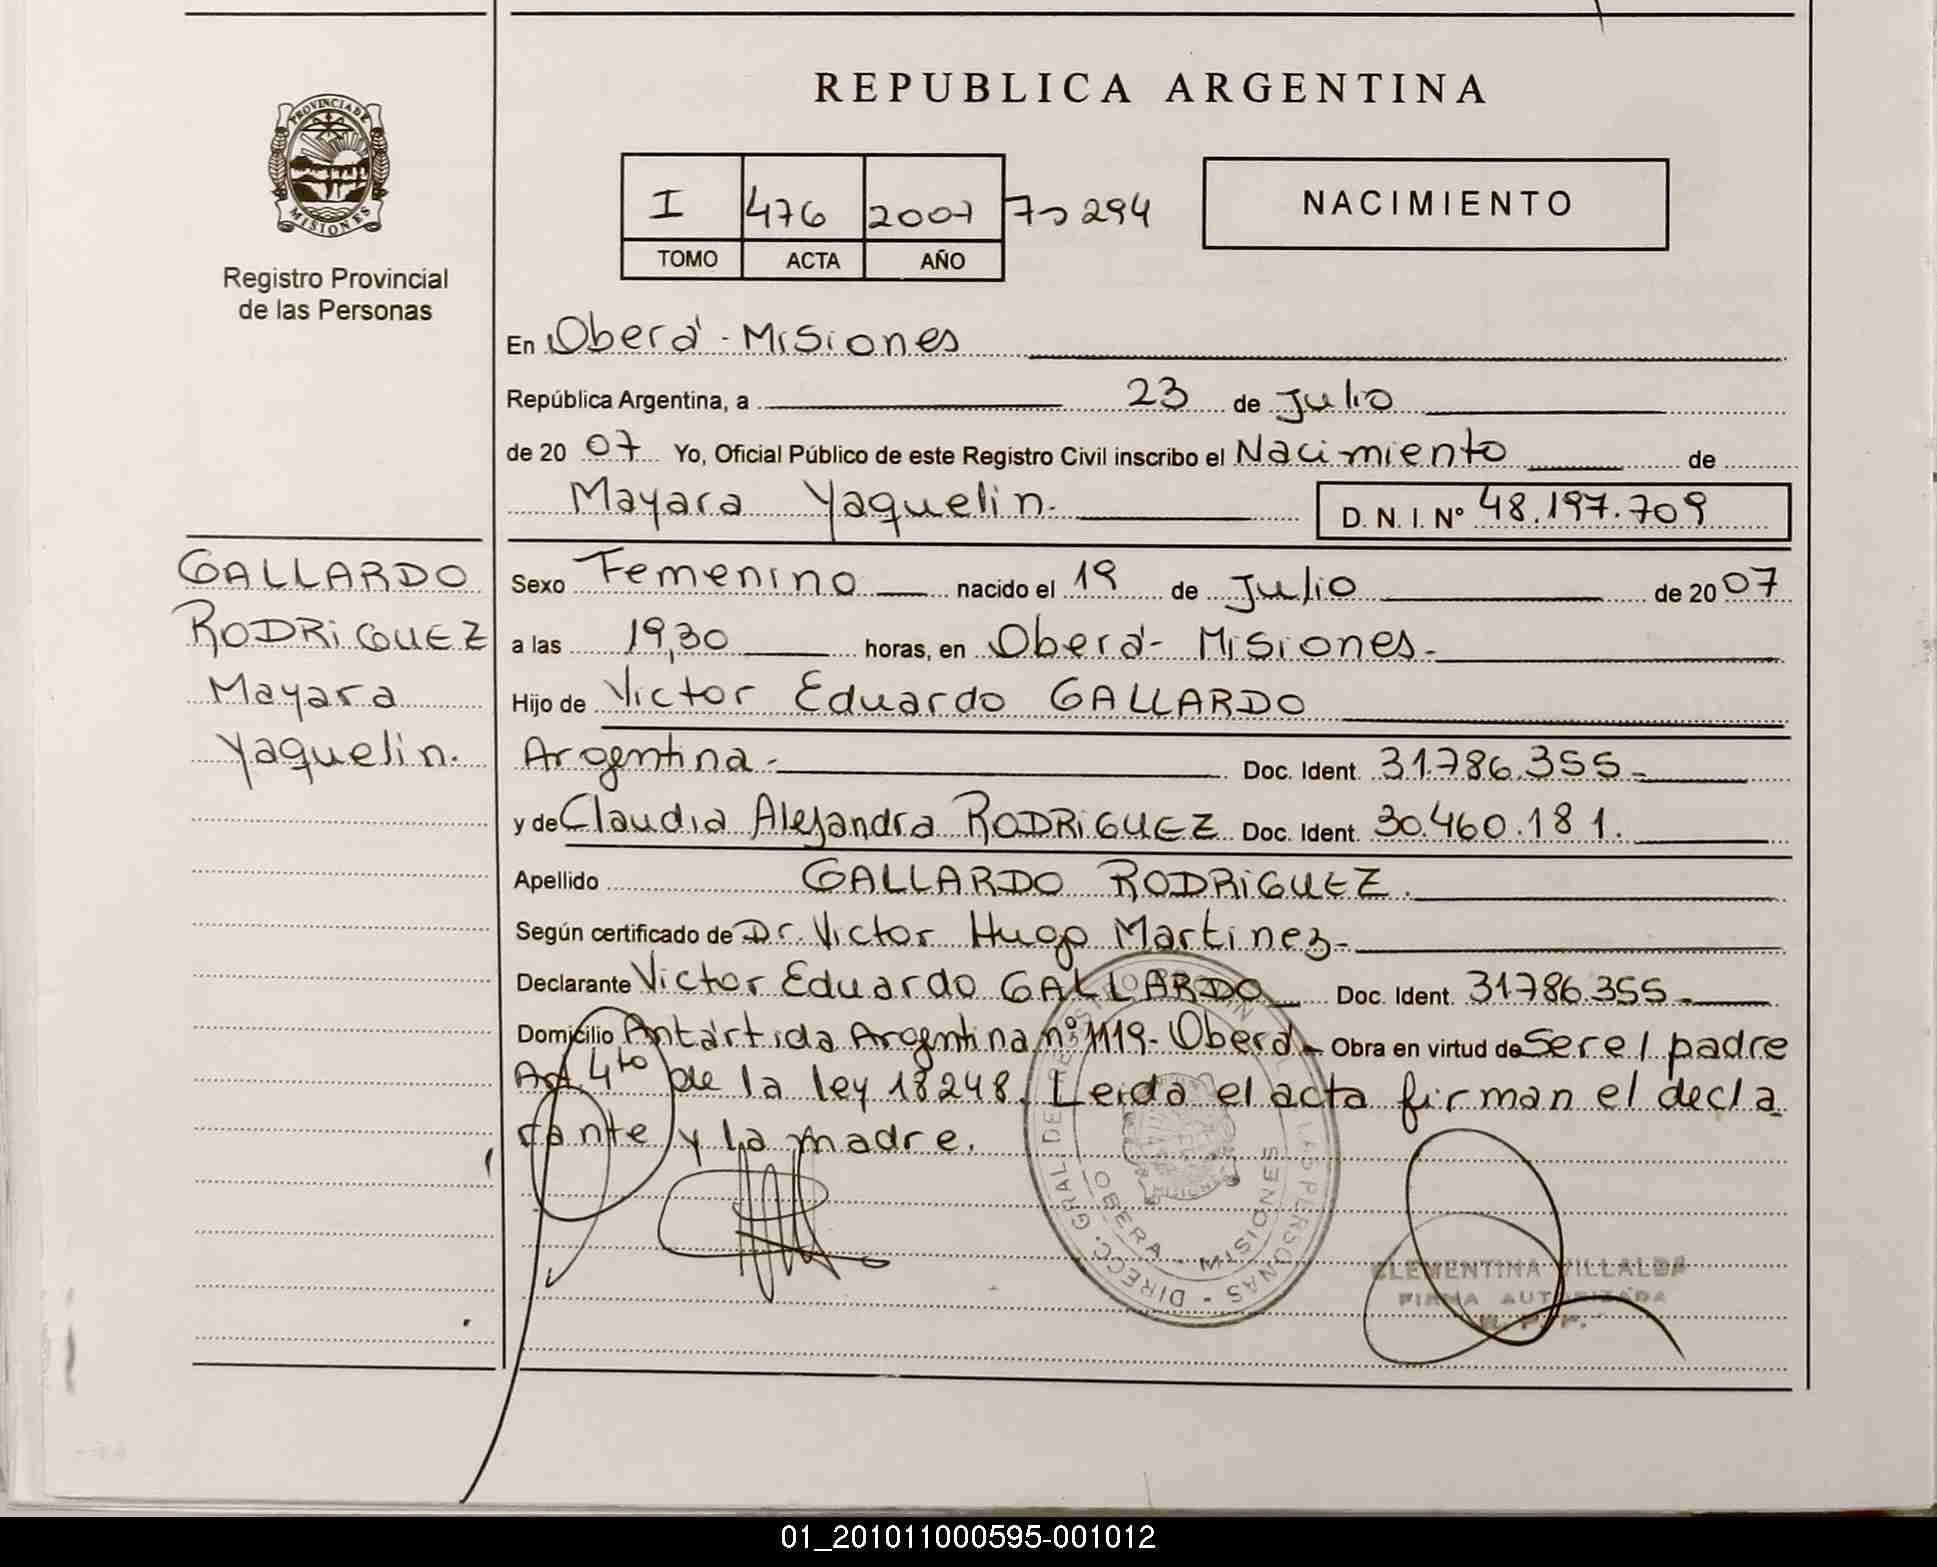 REPUBLICA ARGENTINA
PROVINCIA DE
MISIONES
Registro Provincial
de las Personas
I 476 2007 294
TOMO ACTA AÑO
NACIMIENTO
En Oberá - Misiones
República Argentina, a 23 de Julio
de 20 07 Yo, Oficial Público de este Registro Civil inscribo el Nacimiento de
Mayara Yaquelin. D. N. I. Nº 48.197.709
GALLARDO
RODRIGUEZ
Mayara
Yaquelin.
Sexo Femenino nacido el 19 de Julio de 20 07
a las 19,30 horas, en Oberá - Misiones.
Hijo de Victor Eduardo GALLARDO
Argentina - Doc. Ident. 31.786.355 -
y de Claudia Alejandra RODRIGUEZ Doc. Ident. 30.460.181.
Apellido GALLARDO RODRIGUEZ.
Según certificado de Dr. Victor Hugo Martinez -
Declarante Victor Eduardo GALLARDO Doc. Ident. 31786.355 -
Domicilio Antártida Argentina nº 1119 - Oberá - Obra en virtud de Ser el padre
Art. 4to de la ley 18248. Leida el acta firman el decla
rante y la madre.
DIRECC. GRAL DE REGISTRO PROVINCIAL LAS PERSONAS -
OBERA - MISIONES
MISIONES
CLEMENTINA VILLALBA
FIRMA AUTORIZADA
R. P. P.
01_201011000595-001012